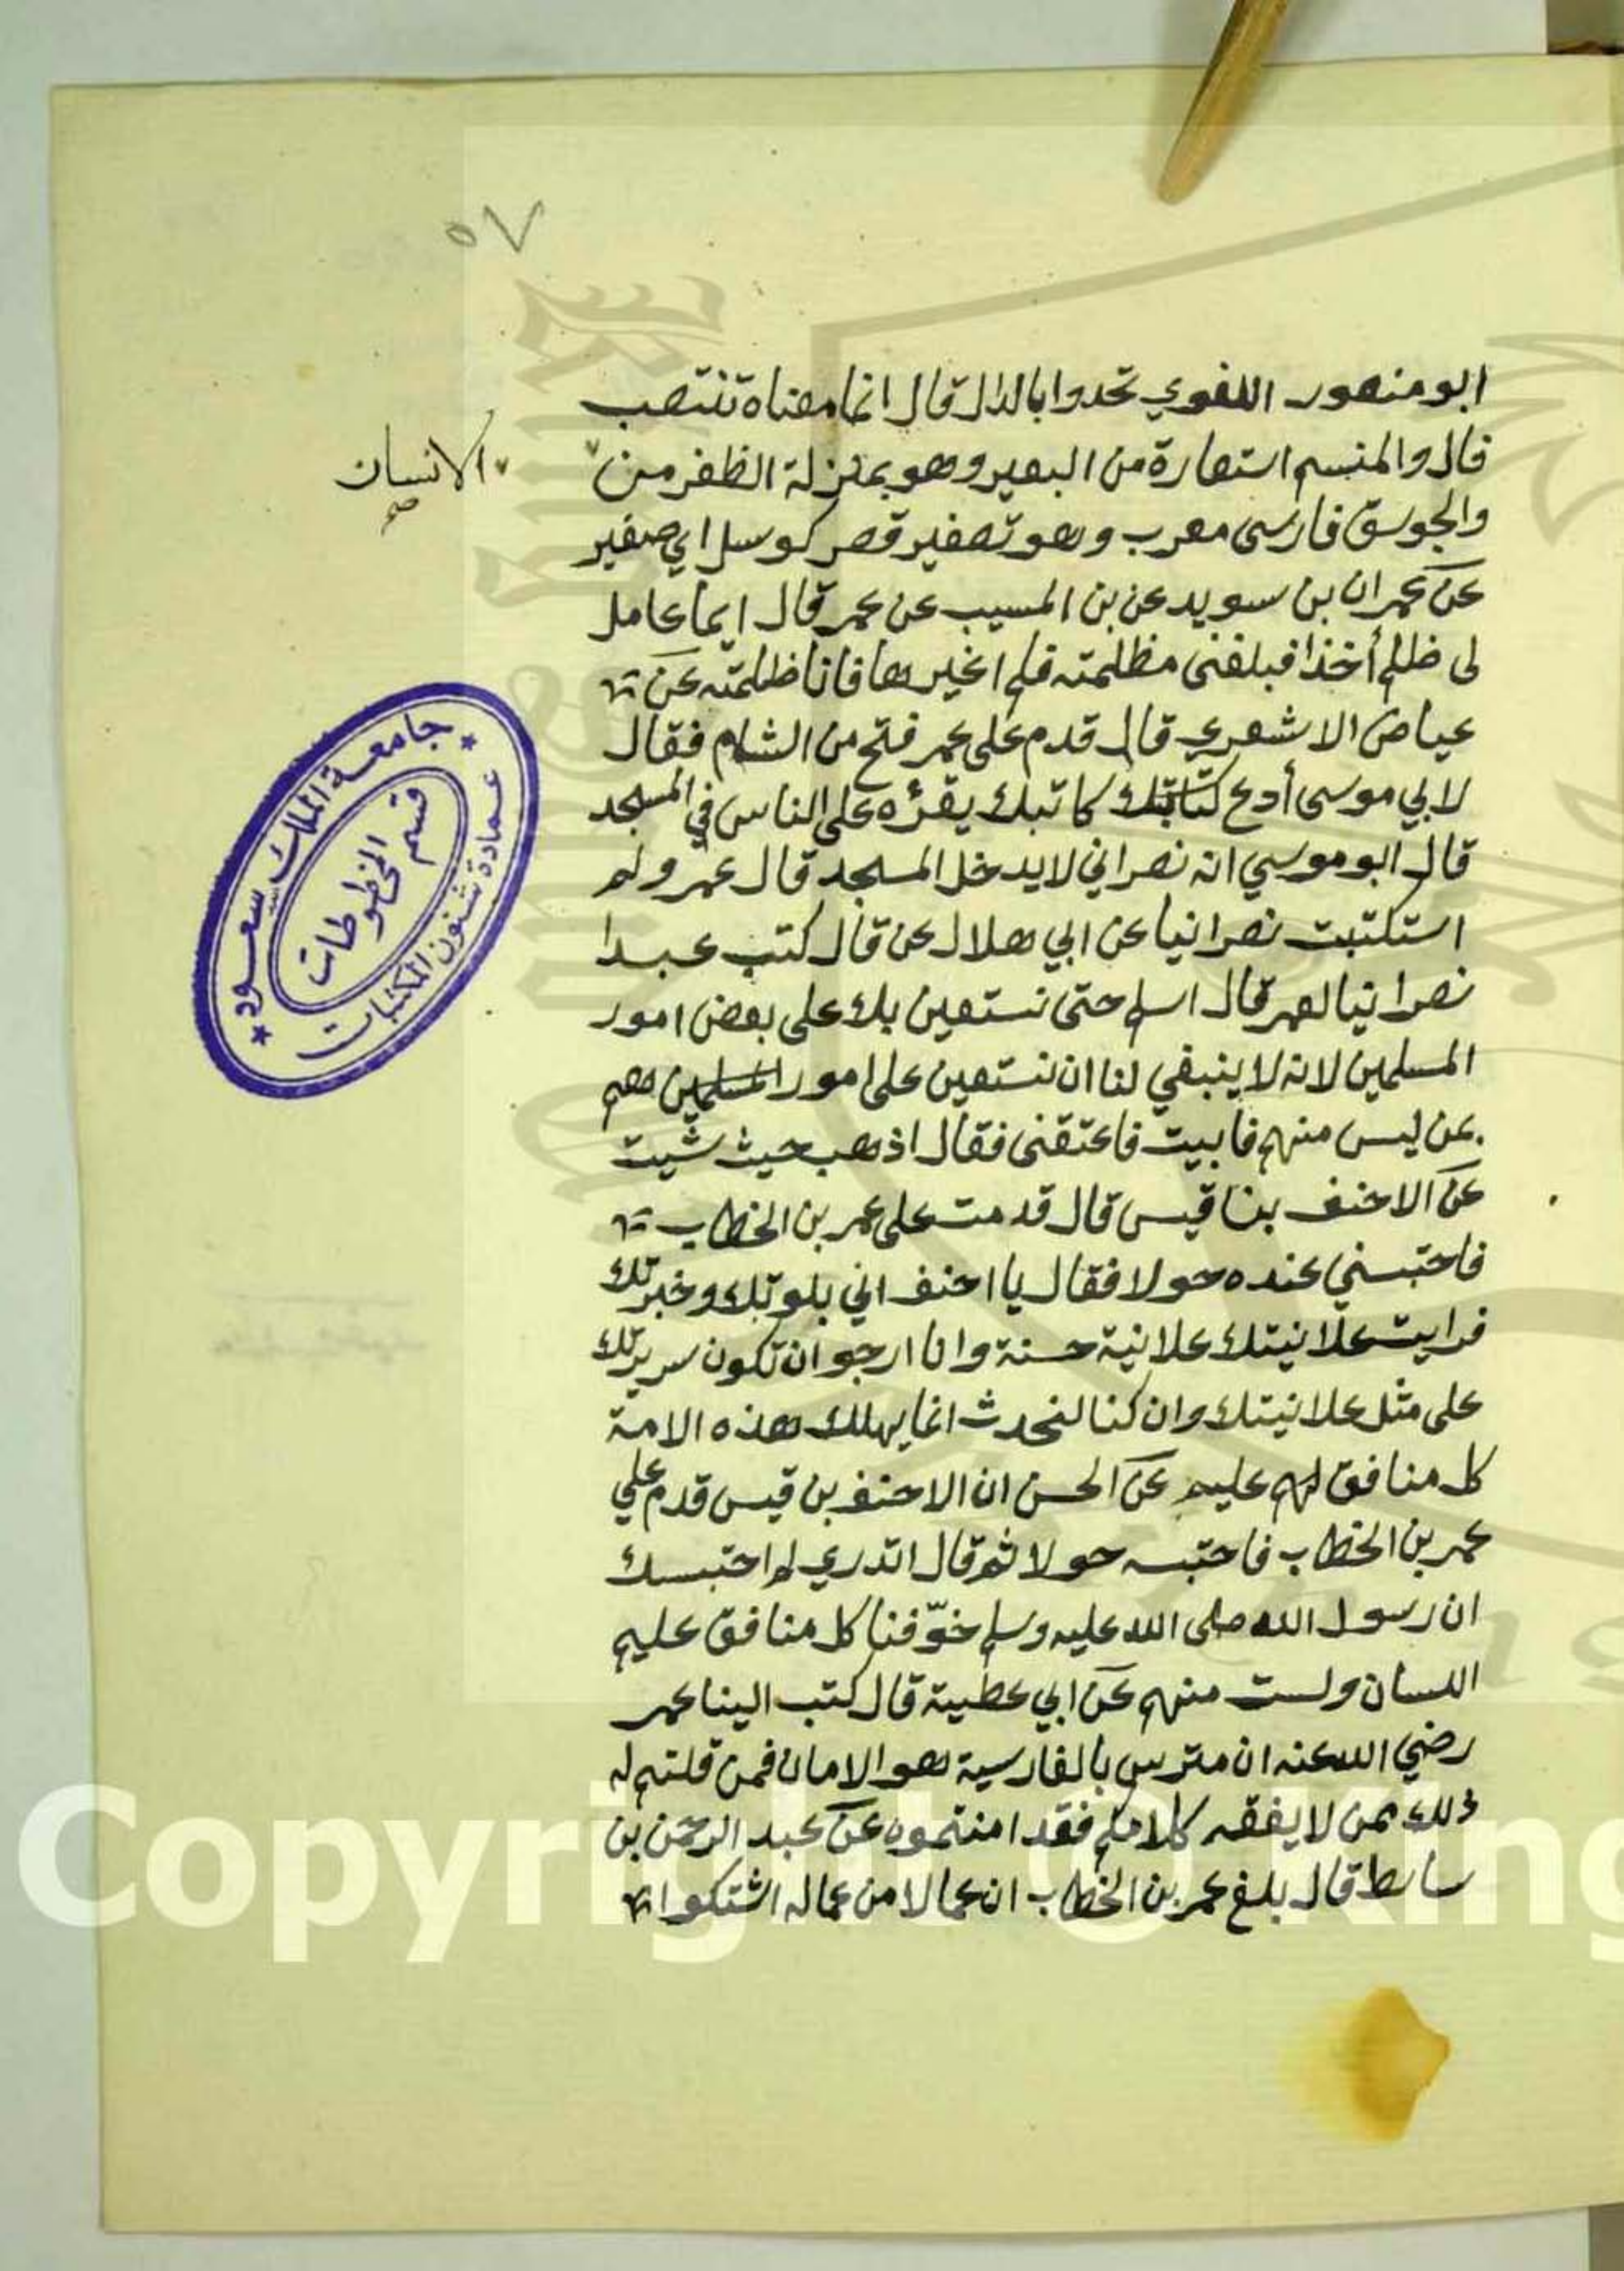 ٥٧
ابو منصور اللغوي تحدوا بالدال قال انما معناه تنتصب
قال والمنسم استعارة من البعير وهو بمنزلة الظفر من
الانسان صح
والجوسق فارسى معرب وهو تصغير قصر كوسك اي صغير
عن عمران بن سويد عن بن المسيب عن عمر قال ايما عامل
لى ظلم أخذا فبلغنى مظلمته فلم اغيرها فانا ظلمته عن
عياض الاشعري قال قدم على عمر فتح من الشام فقال
لابي موسى أدع كاتبك يقرؤه على الناس في المسجد
قال ابو موسي انه نصراني لا يدخل المسجد قال عمر ولم
استكتبت نصرانيا عن ابي هلال عن قال كتب عبدا
نصرانيا لعمر قال اسلم حتى نستعين بك على بعض امور
المسلمين لانه لا ينبغي لنا ان نستعين على امور المسلمين
عن ليس منهم فابيت فاعتقنى فقال اذهب حيث شيت
عن الاحنف بن قيس قال قدمت على عمر بن الخطاب
فاحتبسني عنده حولا فقال يا احنف اني بلوتك وخبرتك
فرايت علانيتك علانية حسنة وانا ارجو ان تكون سريرتك
على مثل علانيتك وان كنا لنحدث انما يهلك هذه الامة
كل منافق عليم عن الحسن ان الاحنف بن قيس قدم علي
عمر بن الخطاب فاحتبسه حولا ثم قال اتدري لم احتبستك
ان رسول الله صلى الله عليه وسلم خوّفنا كل منافق عليم
اللسان ولست منهم عن ابي عطية قال كتب الينا عمر
رضي الله عنه ان مترس بالفارسية هو الامان فمن قلتم له
ذلك ممن لا يفقه كلامكم فقد امنتموه عن عبد الرحمن بن
سابط قال بلغ عمر بن الخطاب ان عمالا من عماله اشتكوا
جامعة الملك سعود
عمادة شئون المكتبات
قسم المخطوطات
Copyright © King